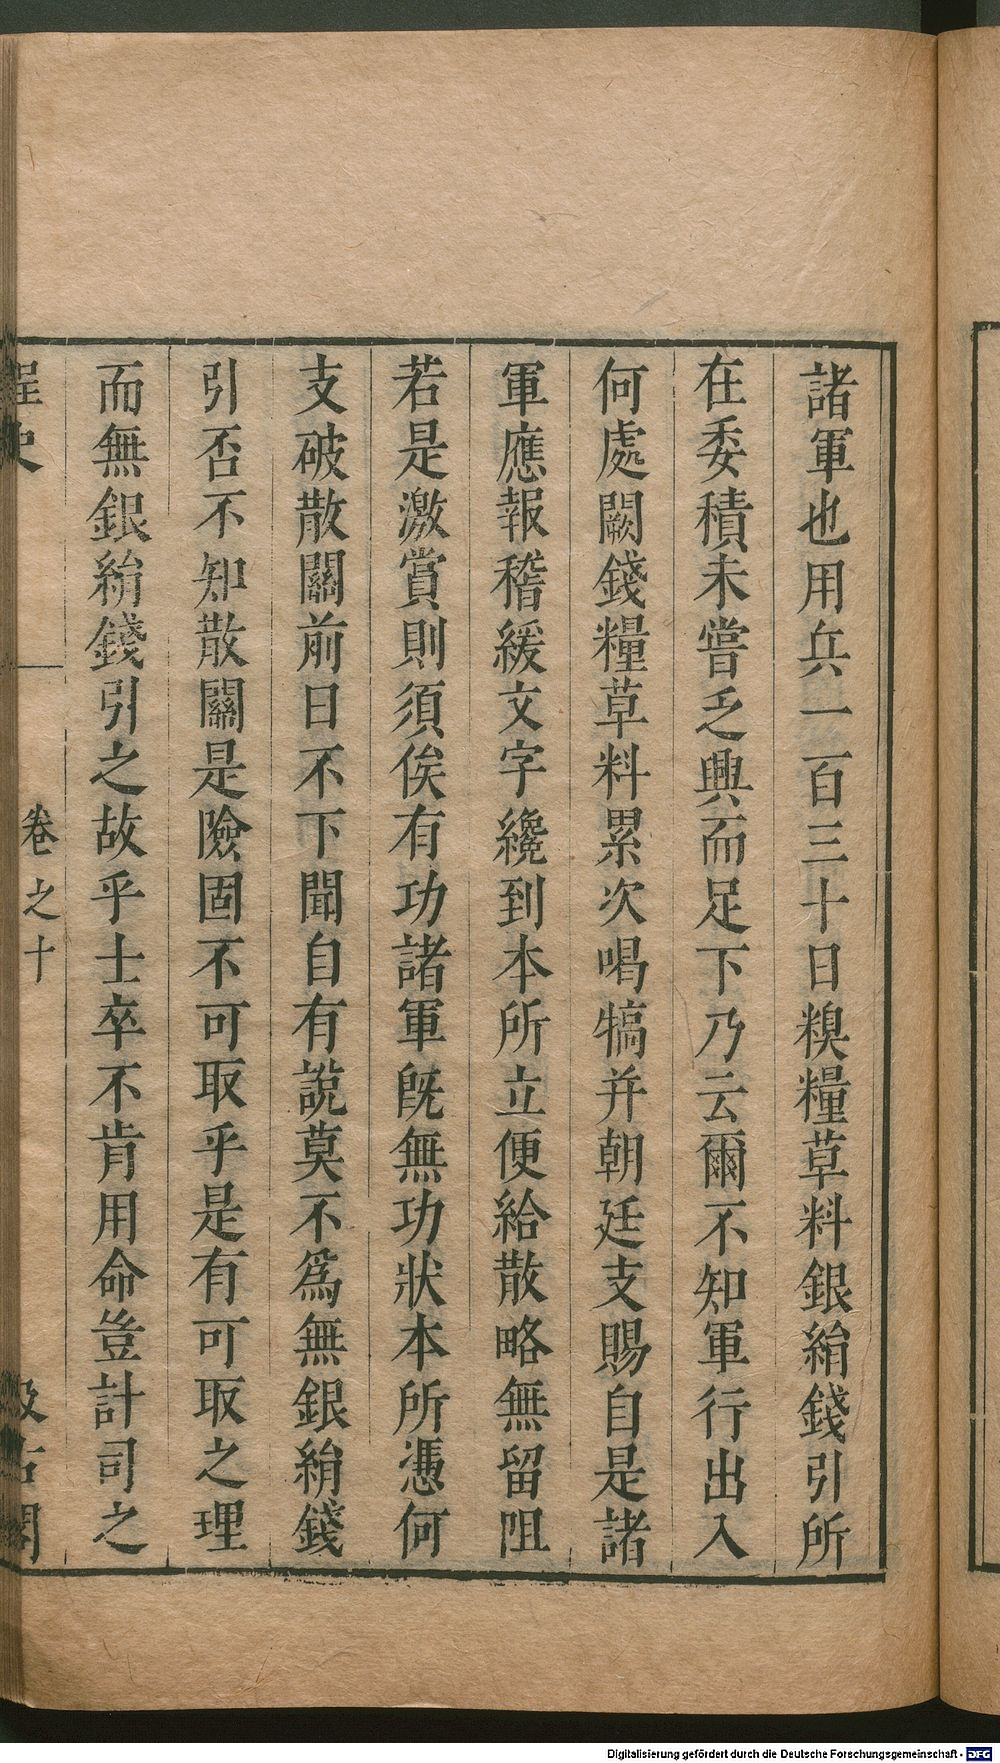 諸軍也用兵一百三十日糗糧草料銀絹錢引所
在委積未嘗乏興而足下乃云爾不知軍行出入
何處闕錢糧草料累次喝犒并朝廷支賜自是諸
軍應報稽緩文字纔到本所立便給散略無留阻
若是激賞則須俟有功諸軍旣無功狀本所憑何
支破散關前日不下聞自有說莫不爲無銀絹錢
引否不知散關是險固不可取乎是有可取之理
而無銀絹錢引之故乎士卒不肯用命豈計司之
桯史 卷之十 汲古閣
Digitalisierung gefördert durch die Deutsche Forschungsgemeinschaft - DFG